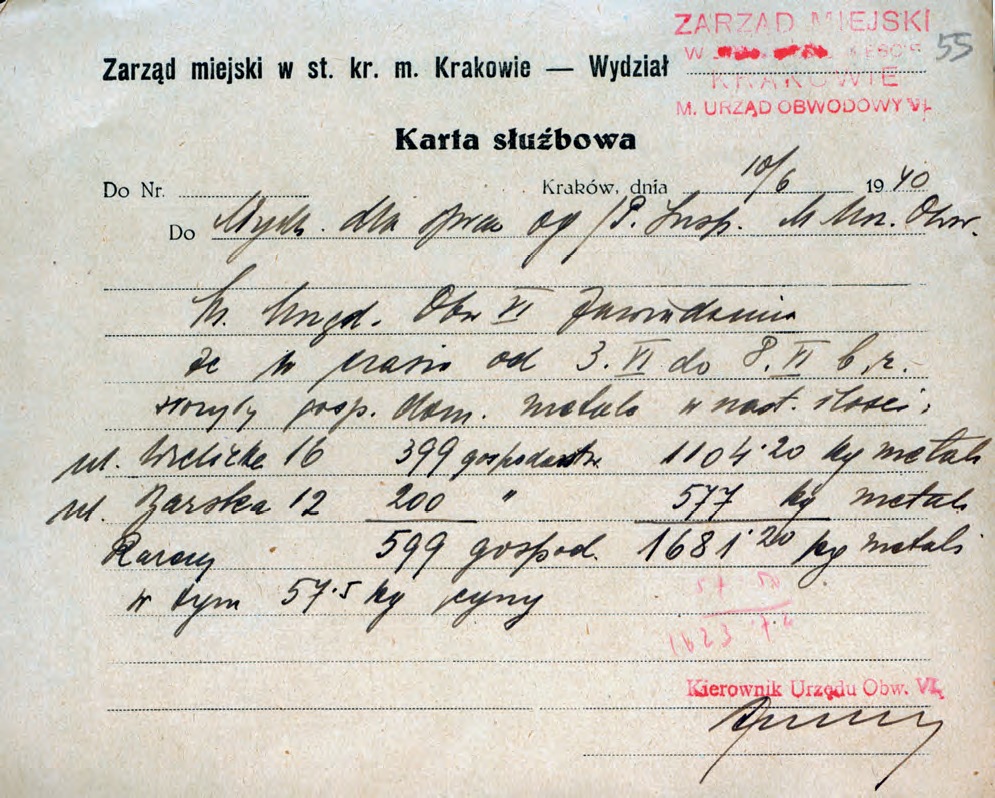 ZARZĄD MIEJSKI
W
KRAKOWIE
M. URZĄD OBWODOWY VI.
55
Zarząd miejski w st. kr. m. Krakowie — Wydział
Karta służbowa
Do Nr. Kraków, dnia 10/6 1940
Do Wydz. dla spraw og /P. Insp. M Urz. Obw.
M. Urząd. Obw VI Zawiadamia
że w czasie od 3.VI do 8.VI b.r.
złożyły gosp. dom. metale w nast. ilości:
ul. Wielicka 16 399 gospodarstw. 1104·20 kg metali
ul. Zarska 12 200 " 577 kg metali
Razem 599 gospod. 1681·20 kg metali
w tym 57·5 kg cyny
57 50
1623 7
Kierownik Urzędu Obw. VI.